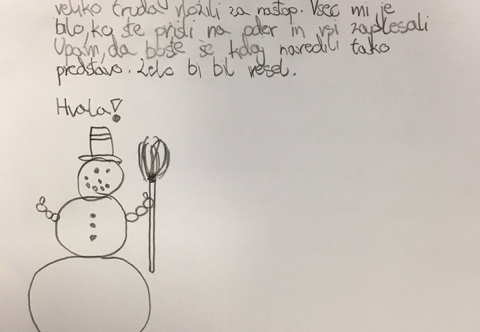 veliko truda vložili za nastop. Všeč mi je
blo, ko ste prišli na oder in vsi zaplesali
Upam, da boste še kdaj naredili tako
predstavo. Zelo bi bil vesel.
Hvala!